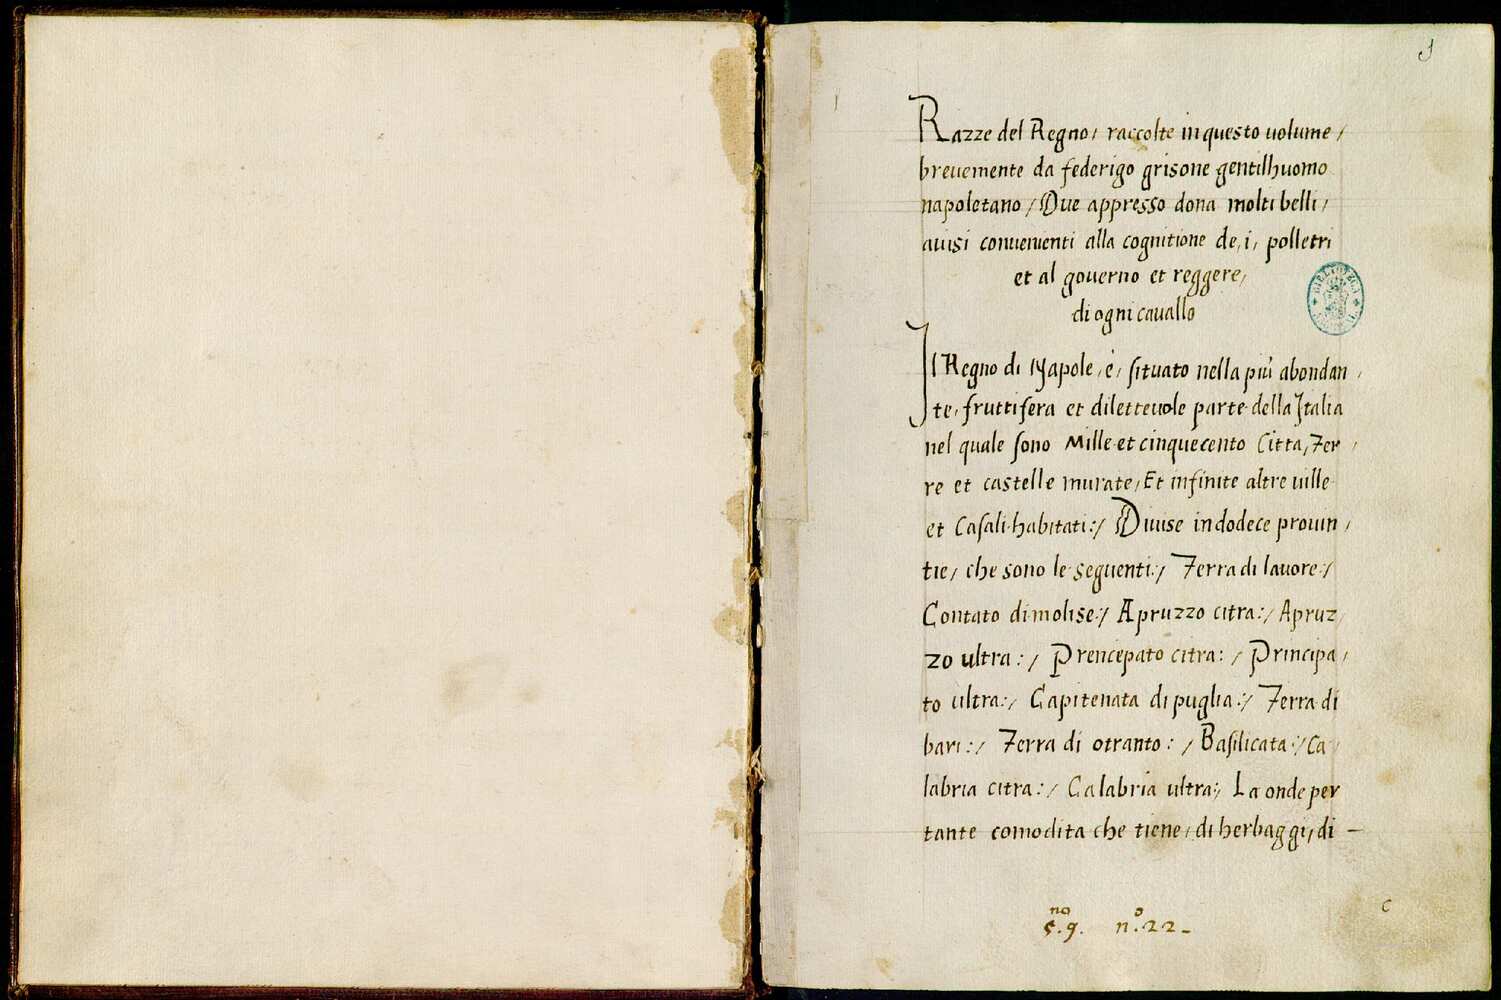 1
Razze del Regno, raccolte in questo uolume /
breuemente da federigo grisone gentilhuomo
napoletano / Oue appresso dona molti belli /
auisi conuenienti alla cognitione de, i, polletri
et al gouerno et reggere,
di ogni cauallo
BIBLIOTECA
Il Regno di Napole, è, situato nella più abondan ,
te, fruttifera et diletteuole parte della Italia
nel quale sono Mille et cinquecento Citta, Ter ,
re et castelle murate, Et infinite altre uille
et Casali habitati :/ Diuise in dodece prouin ,
tie, che sono le seguenti :/ Terra di lauore :/
Contato di molise :/ Apruzzo citra :/ Apruz ,
zo ultra : / Prencepato citra : / Principa ,
to ultra :/ Capitenata di puglia :/ Terra di
bari :/ Terra di otranto : / Basilicata :/ Ca ,
labria citra :/ Calabria ultra :/ La onde per
tante comodita che tiene, di herbaggi, di –
c
no
5. 9. nº. 22_